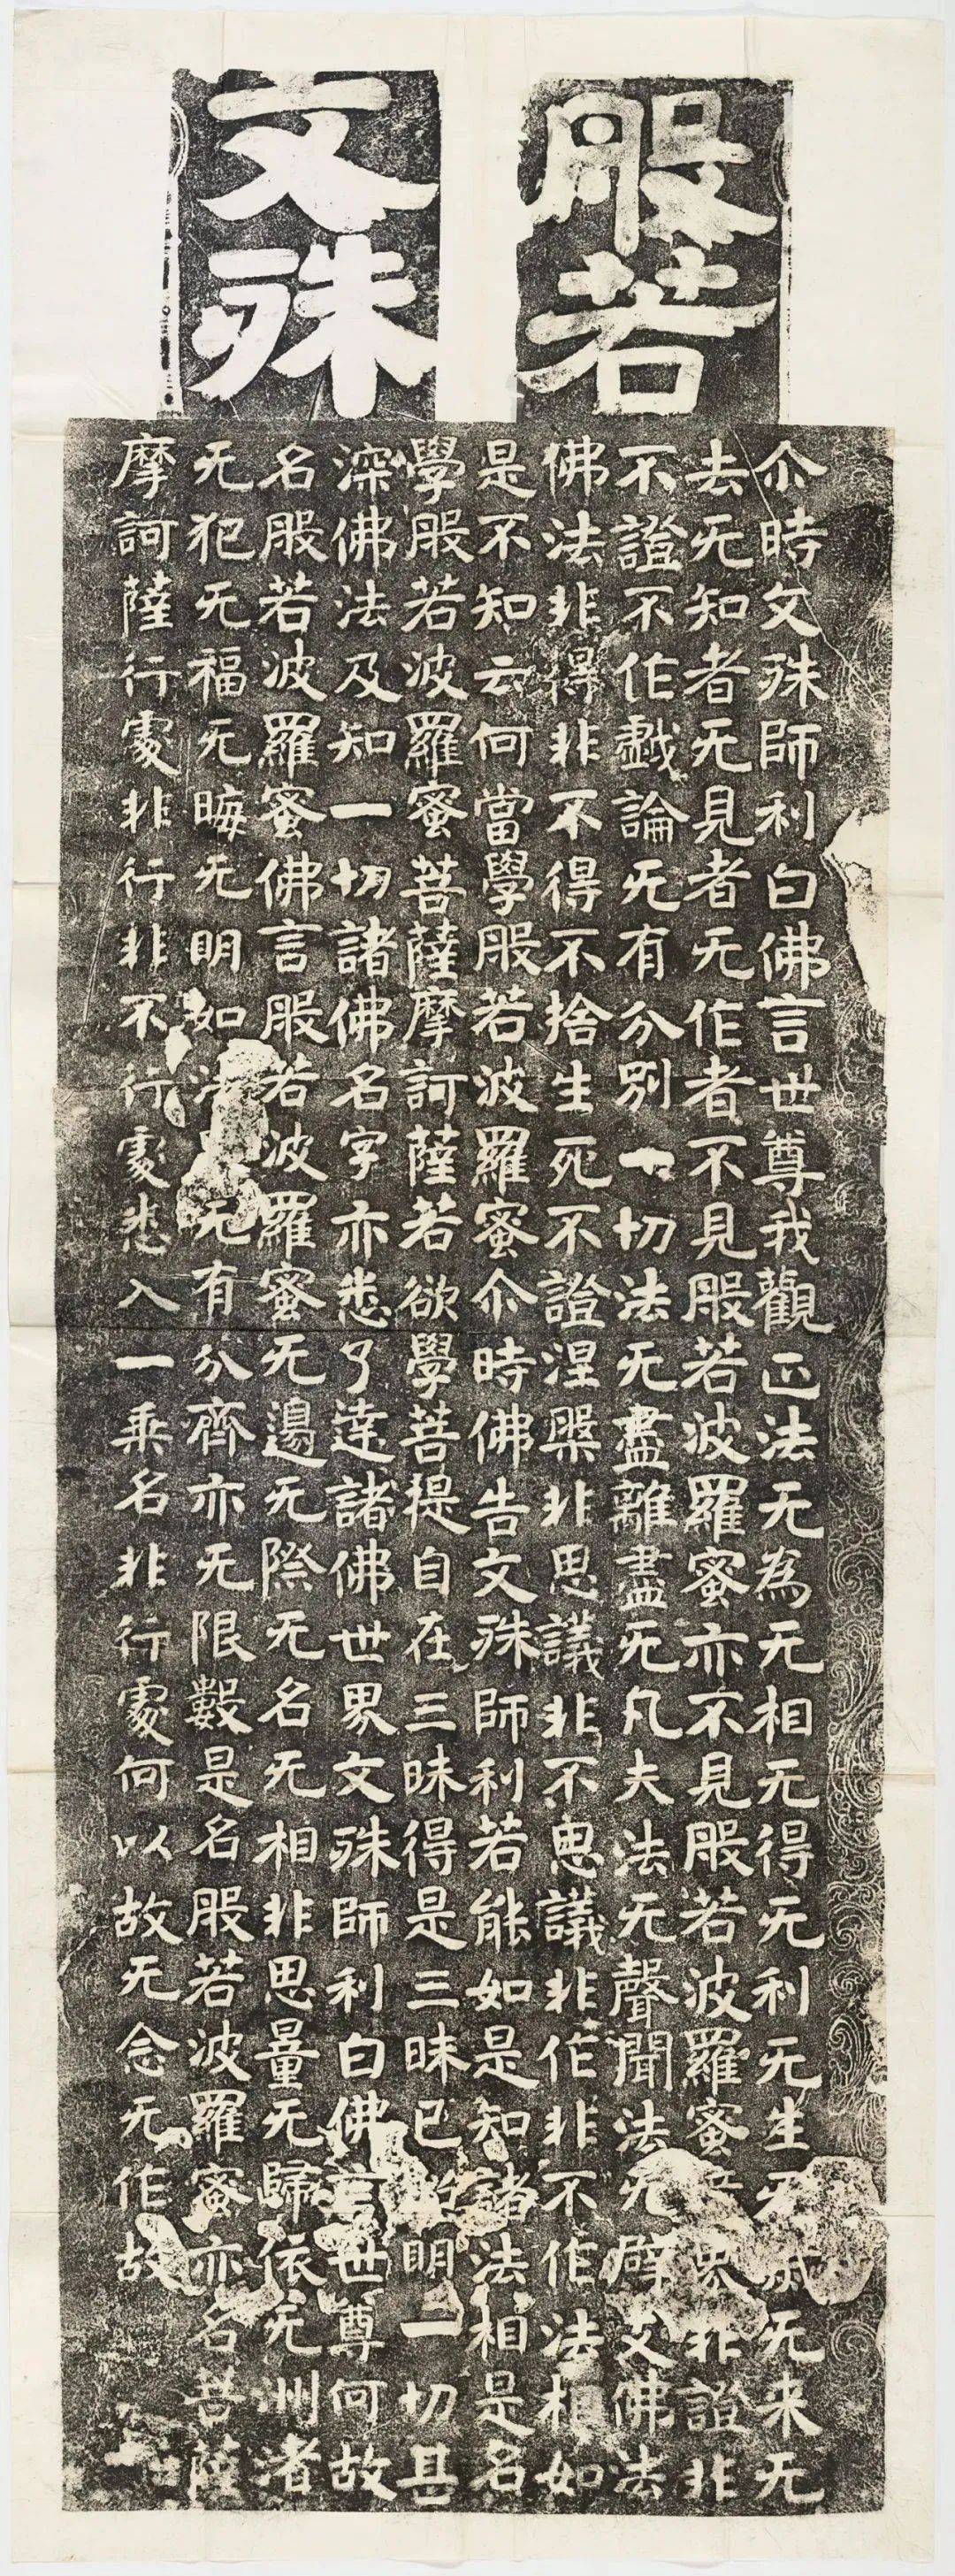 般若
文殊
尒時文殊師利白佛言世尊我觀正法无為无相无得无利无生无滅无来无
去无知者无見者无作者不見般若波羅蜜亦不見般若波羅蜜界非證非
不證不作戲論无有分别一切法无盡離盡无凡夫法无聲聞法无辟支佛法
佛法非得非不得不捨生死不證涅槃非思議非不思議非作非不作法相如
是不知云何當學般若波羅蜜尒時佛告文殊師利若能如是知諸法相是名
學般若波羅蜜菩薩摩訶薩若欲學菩提自在三昧得是三昧已照明一切甚
深佛法及知一切諸佛名字亦悉了達諸佛世界文殊師利白佛言世尊何故
名般若波羅蜜佛言般若波羅蜜无邊无際无名无相非思量无歸依无洲渚
无犯无福无晦无明如法界无有分齊亦无限數是名般若波羅蜜亦名菩薩
摩訶薩行處非行非不行處悉入一乘名非行處何以故无念无作故